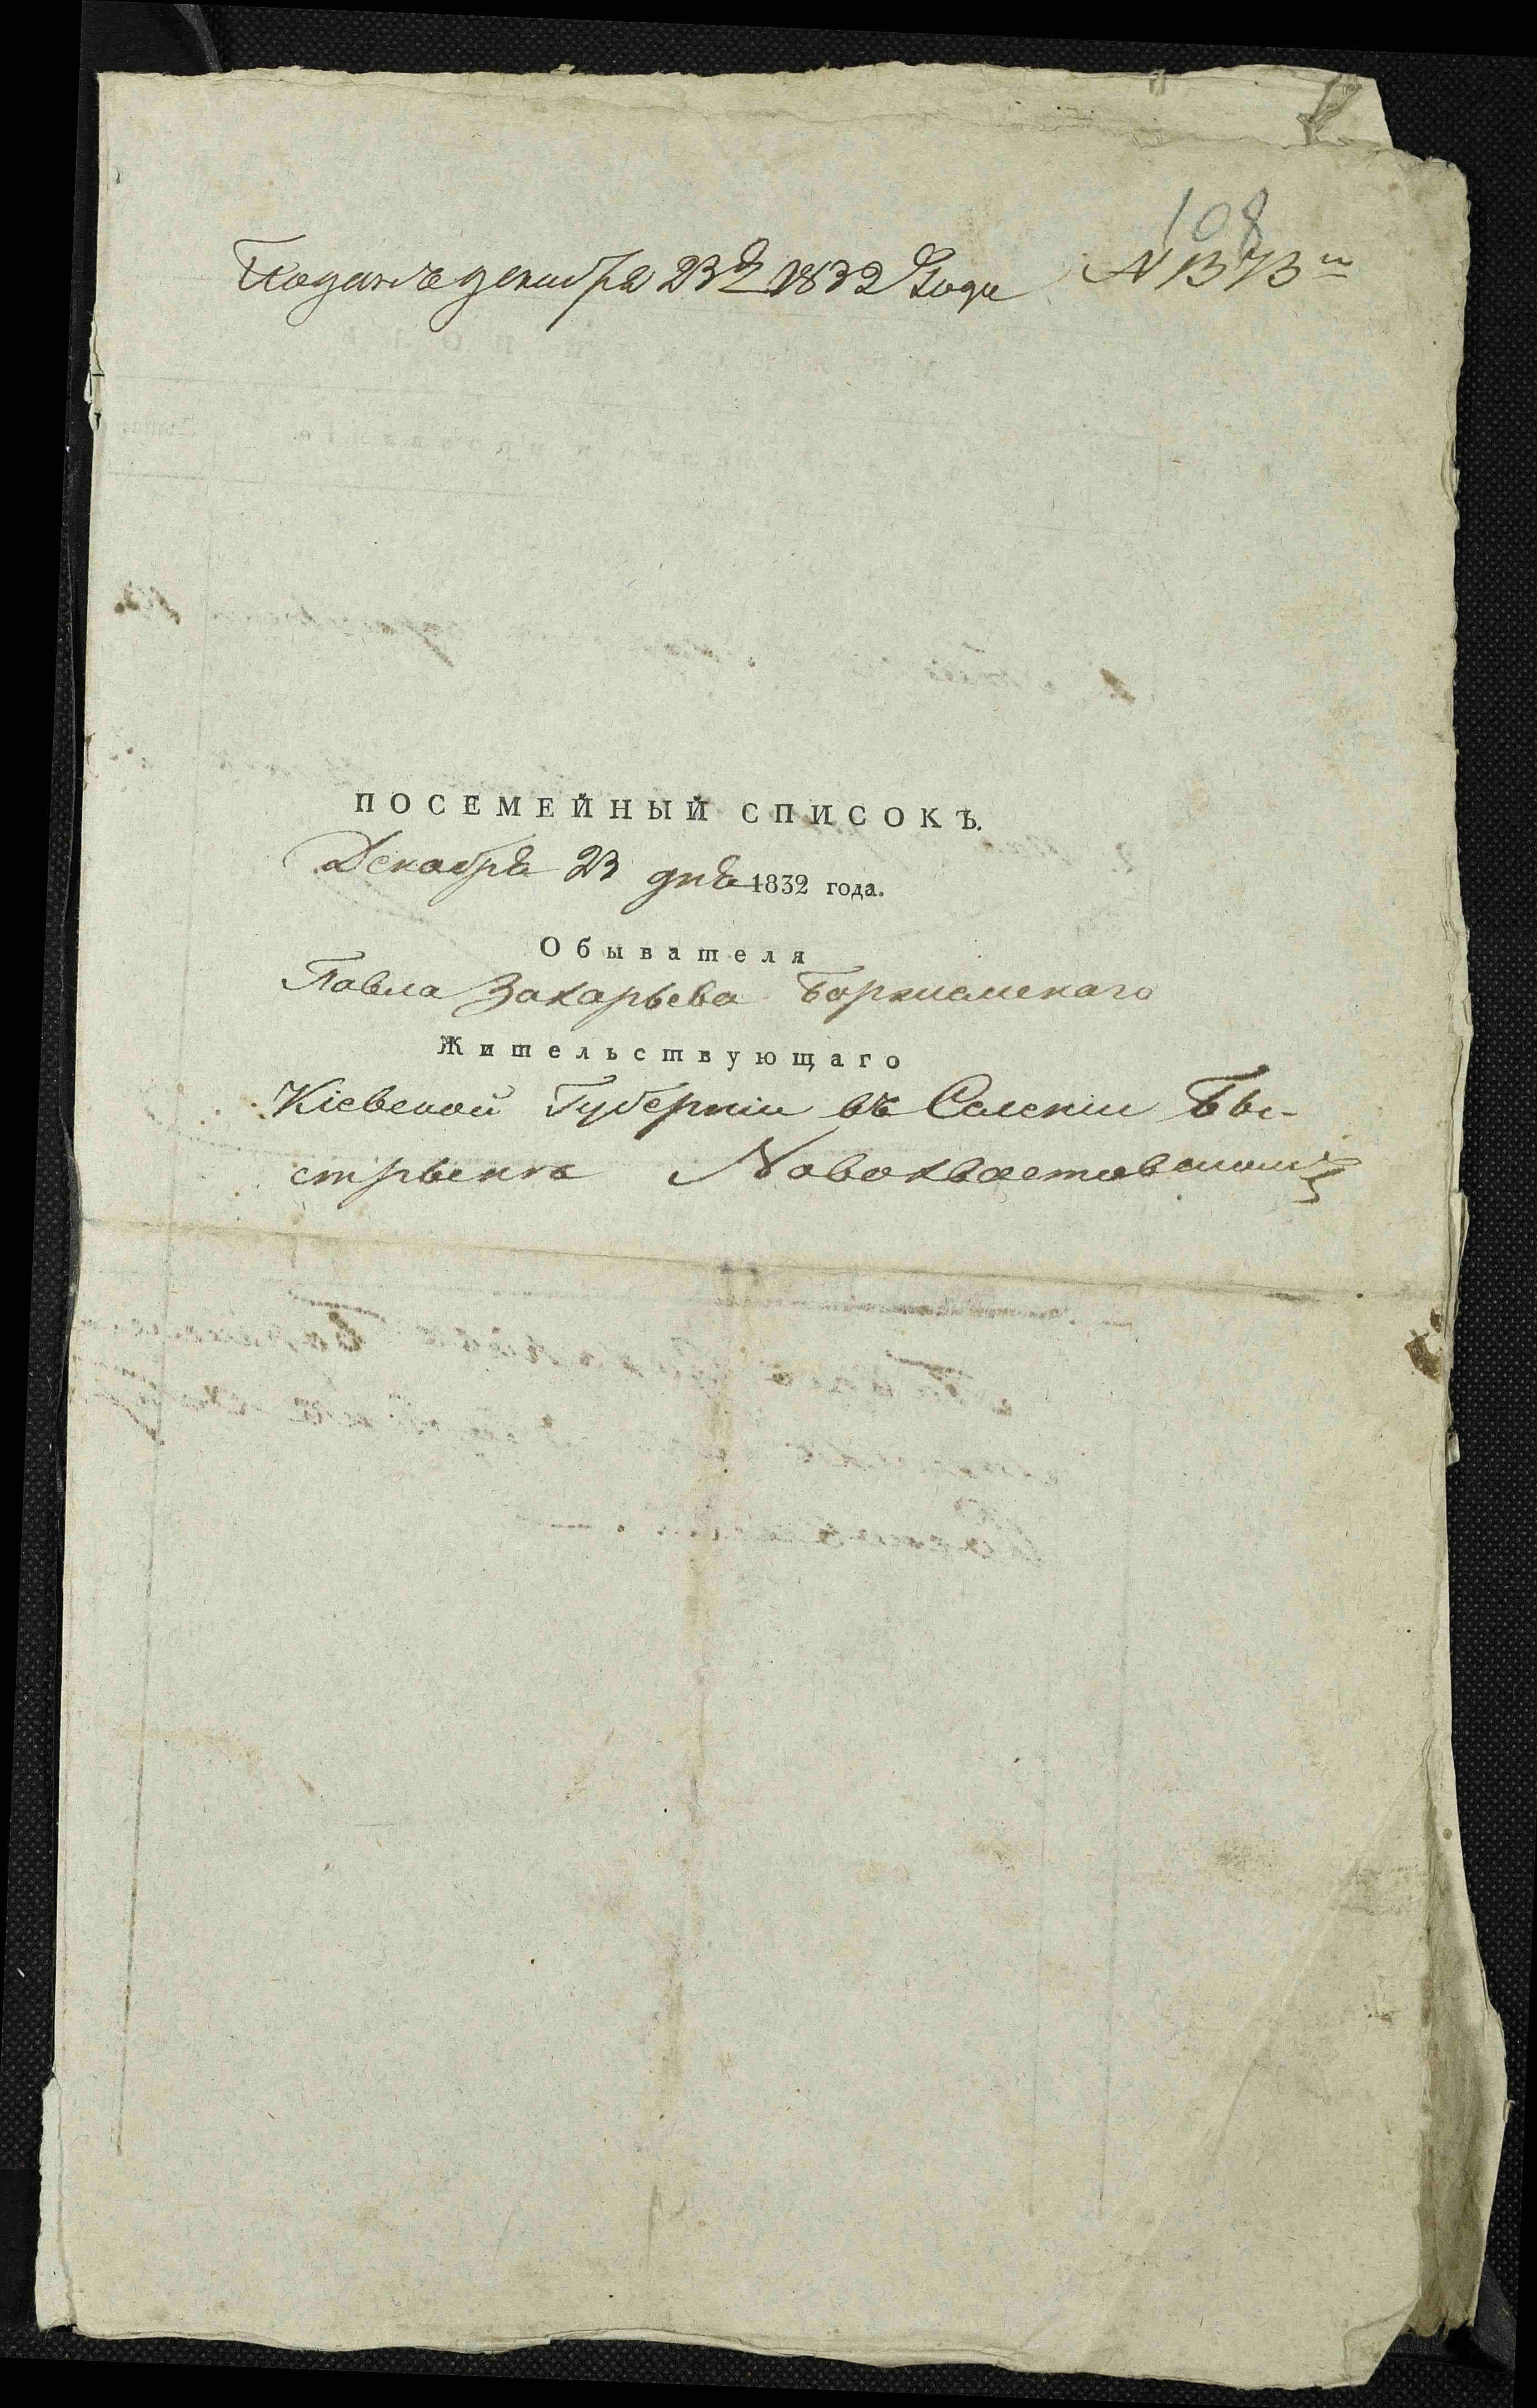 108
Поданъ декабря 23 д 1832 Года N 1373
ПОСЕМЕЙНЫЙ СПИСОКЪ.
Декабря 23 дня 1832 года.
Обывателя
Павла Захарьева
Жительствующаго
Кіевской Губерніи въ Селеніи Бы-
стрыекъ Новохвастовскомъ